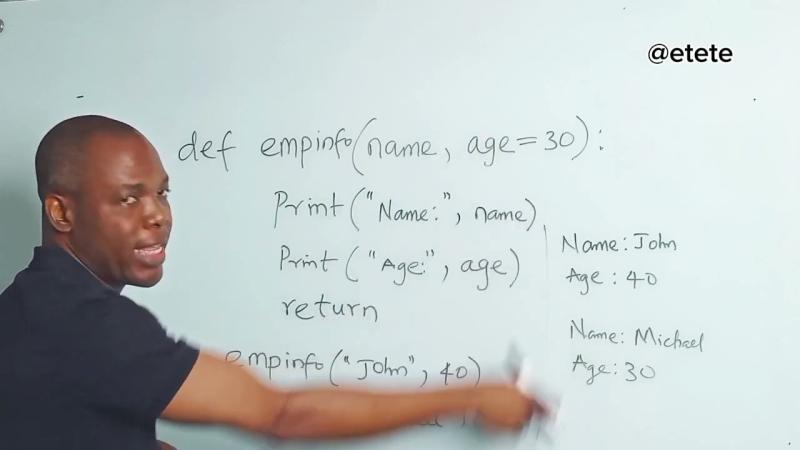 @etete
def empinfo(name, age=30):
Print("Name:", name)
Print("Age:", age)
return
empinfo("John", 40)
Name: John
Age: 40
Name: Michael
Age: 30